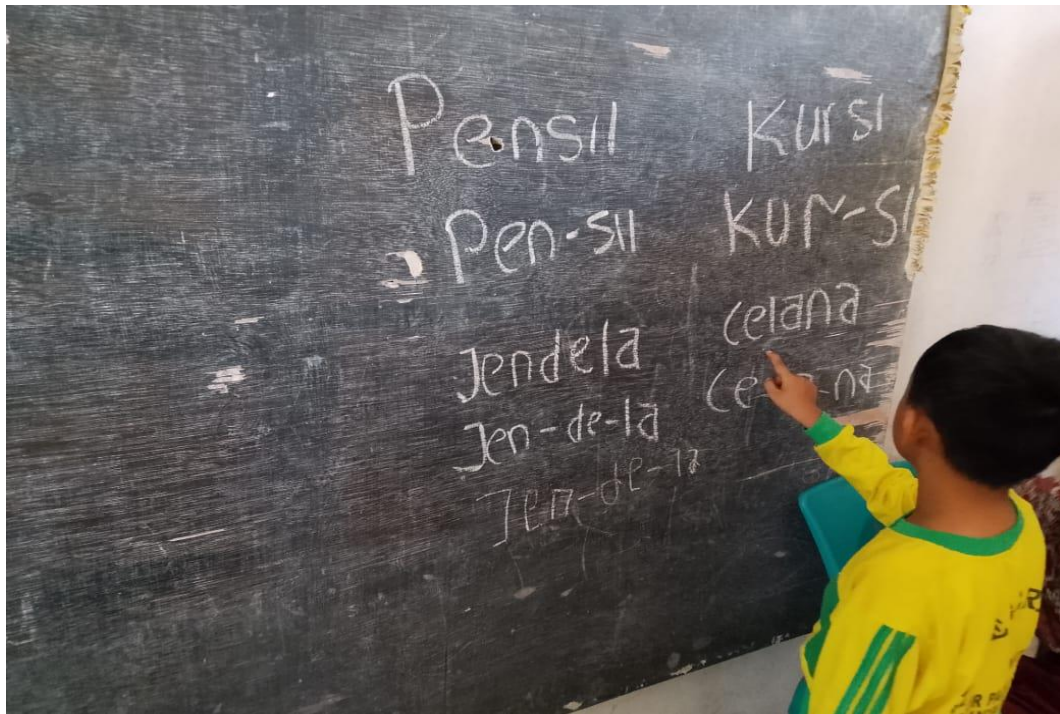 Pensil
Pen-sil
Jendela
Jen-de-la
Jen-de-la
Kursi
Kur-si
Celana